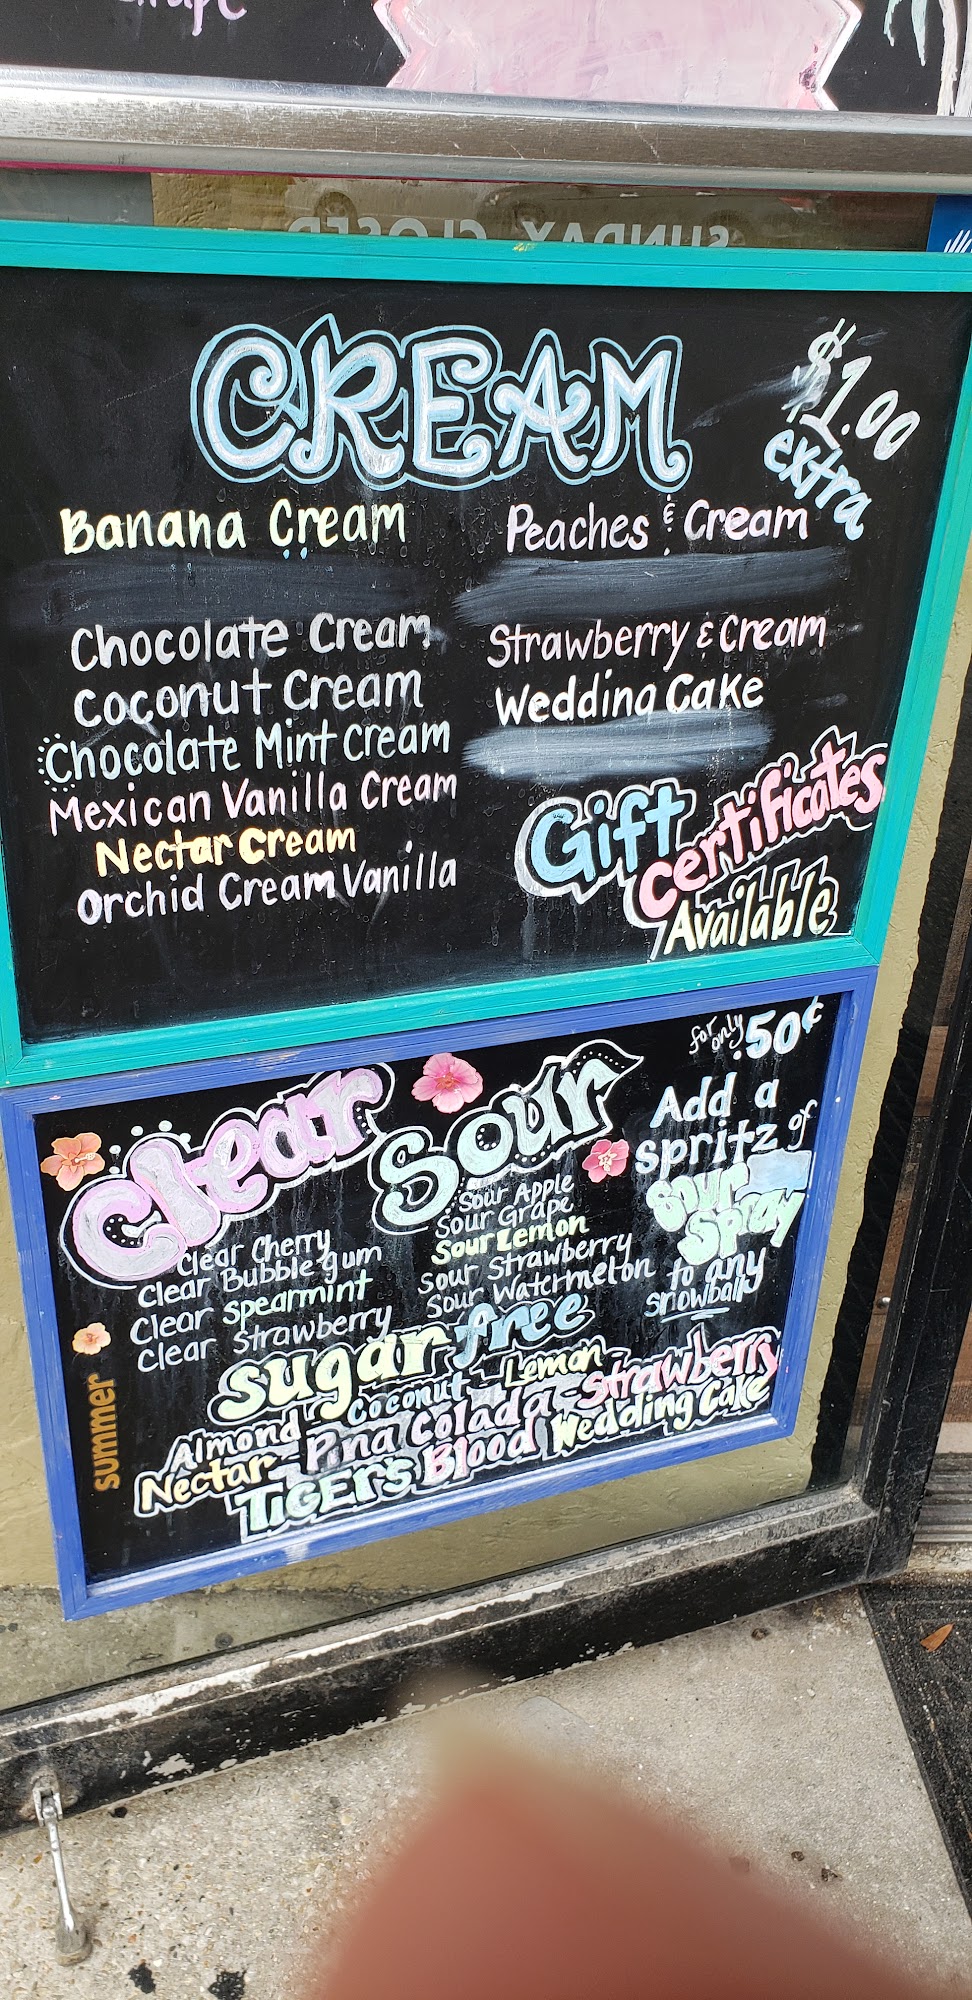 SUNDAY CLOSED
CREAM
$1.00
extra
Banana Cream
Chocolate Cream
Coconut Cream
Chocolate Mint Cream
Mexican Vanilla Cream
Nectar Cream
Orchid Cream Vanilla
Peaches & Cream
Strawberry & Cream
Wedding Cake
Gift
Certificates
Available
Clear
Clear Cherry
Clear Bubble gum
Clear Spearmint
Clear Strawberry
Sour
Sour Apple
Sour Grape
Sour Lemon
Sour Strawberry
Sour Watermelon
for only .50¢
Add a
spritz of
Sour
Spray
to any
snowball
summer
sugar free
Almond Coconut - Lemon - Strawberry
Nectar - Pina Colada - Wedding Cake
TIGER'S Blood